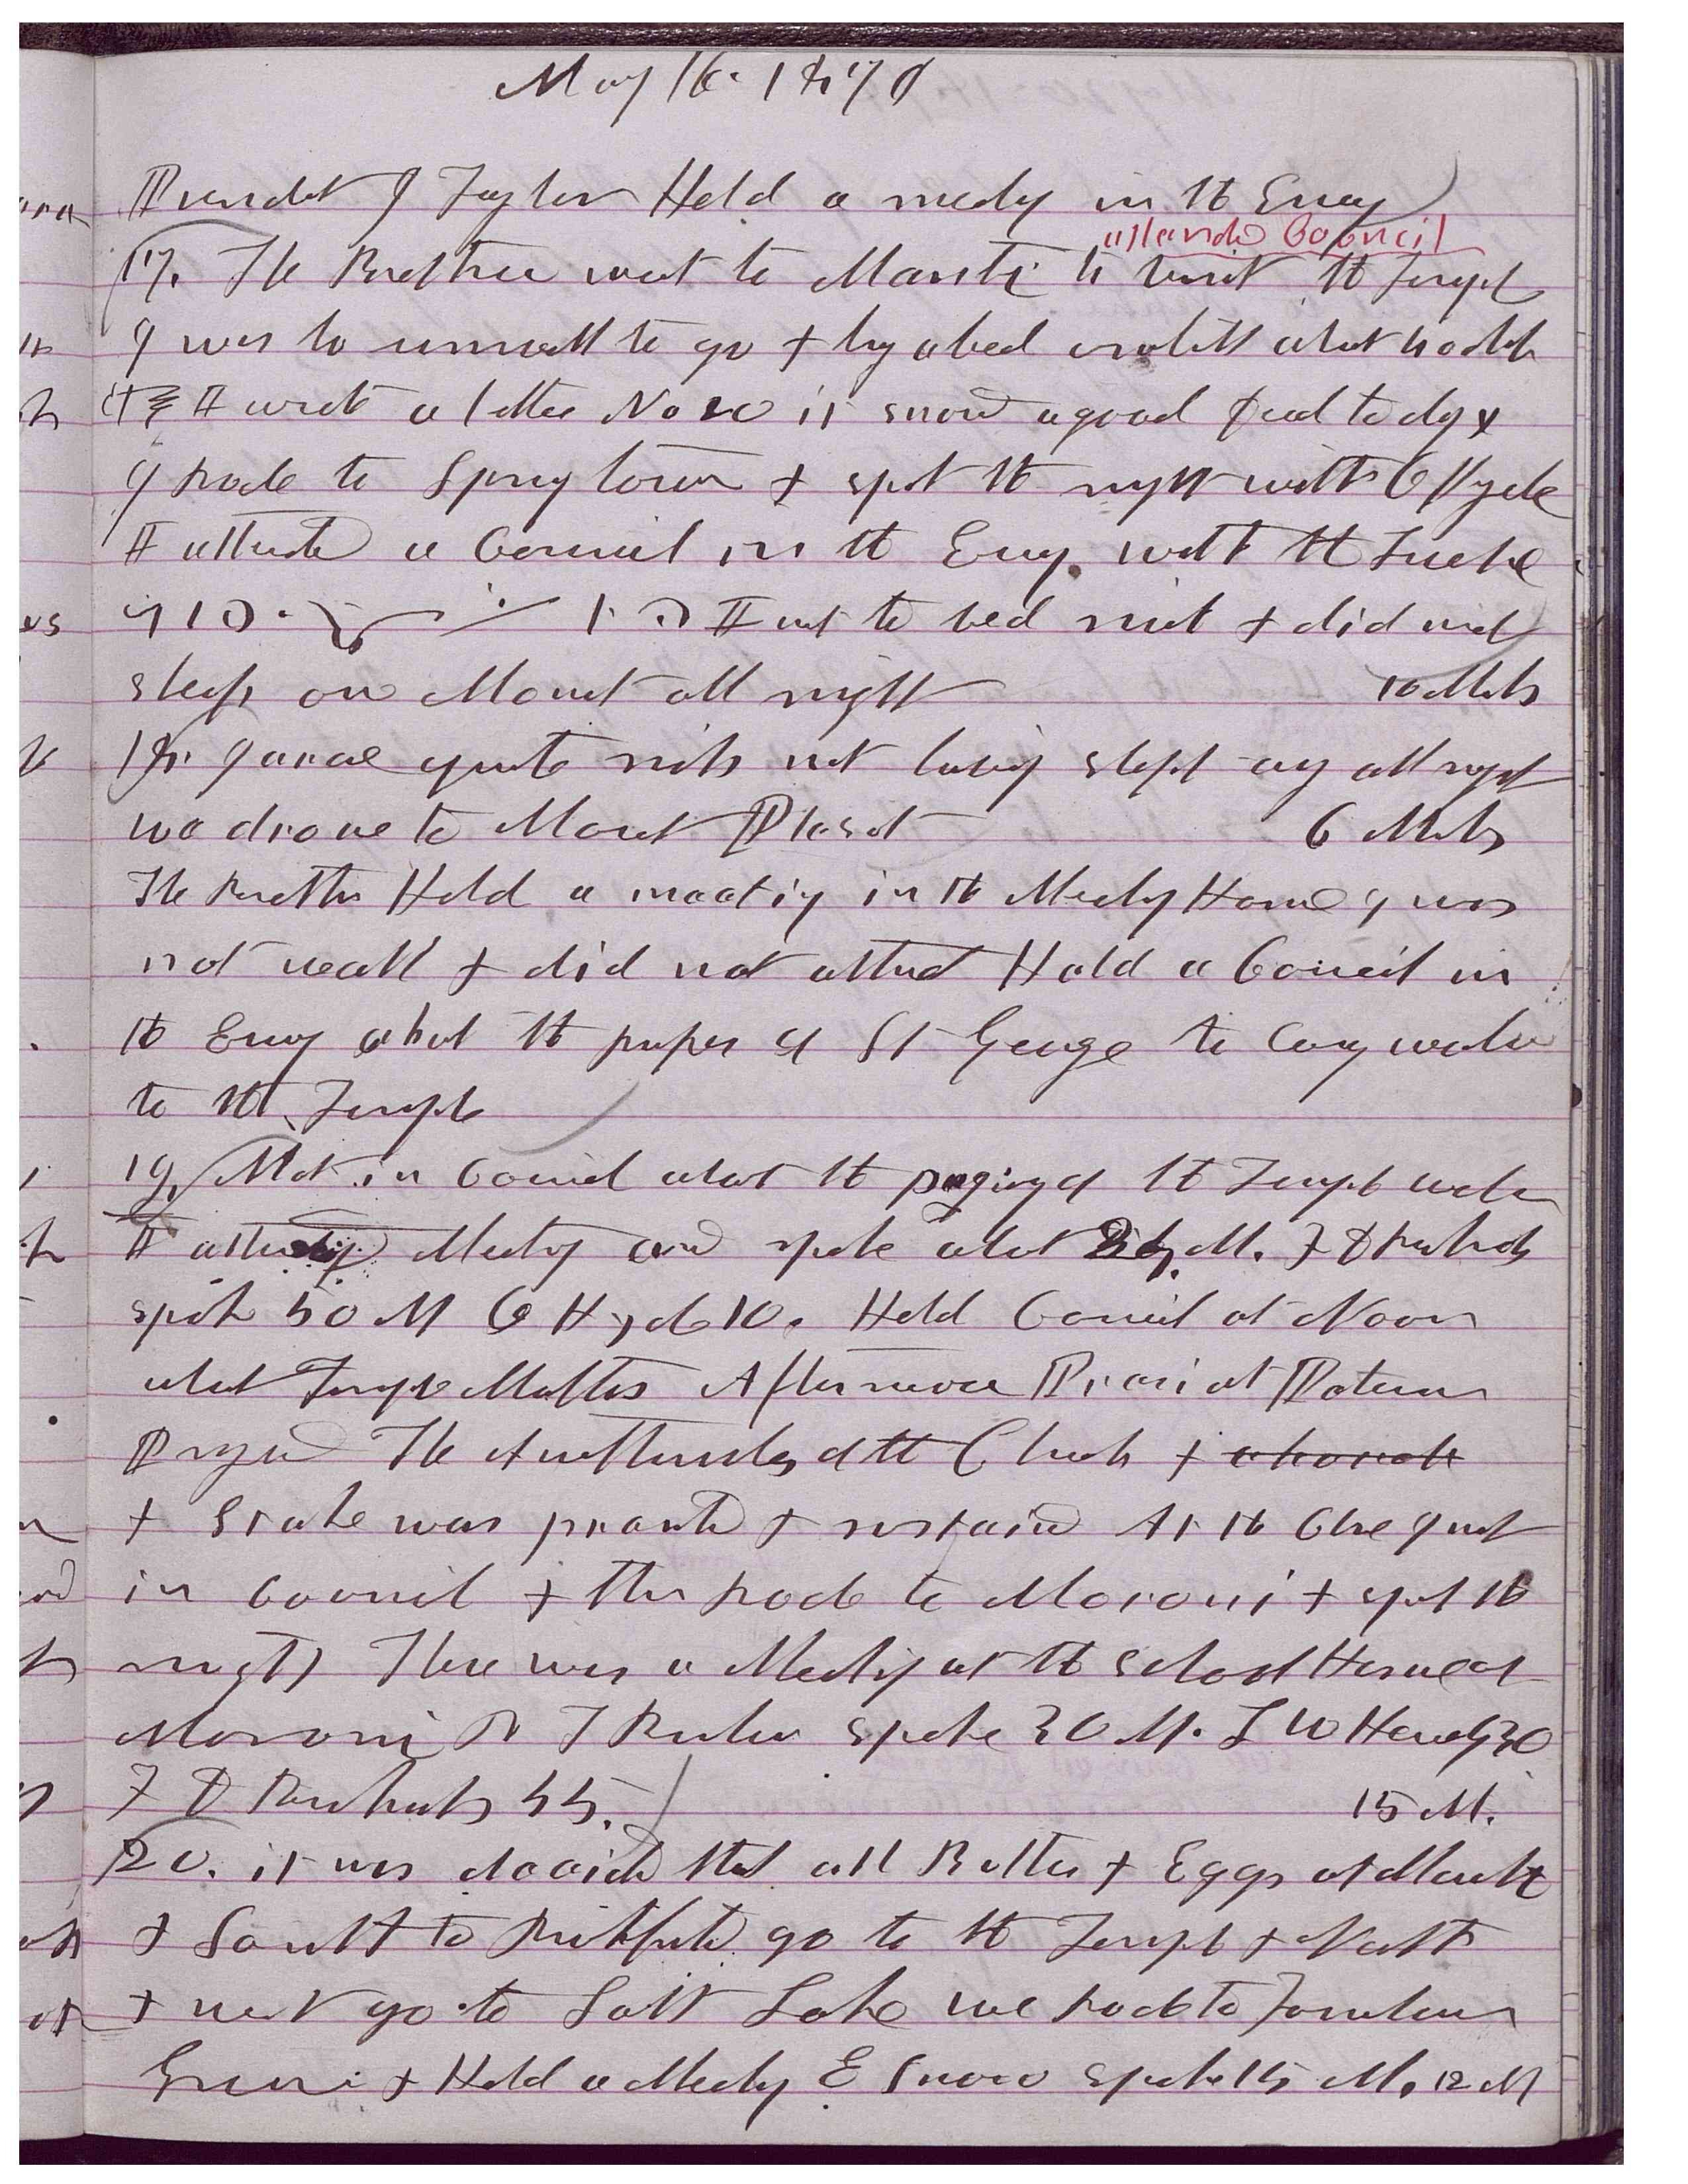 May 16. 1878
President J Taylor Held a meeting in the Eveng
attended Council
17. The Brethren went to Manti to visit the Templ
I was to unwell to go & lay abed untill about
I wrote a letter No 20 it snowed a good deal to day &
I rode to Spring town & spent the night with O Hyde
I attended a Council in the Eveng. with the Twelve
I went to bed sick & did not
sleep one Moment all night 10 Mils
18. I arose quite sick not having slept any all night
we drove to Mount Pleasant 6 Mils
The Brethren Held a meeting in the Meeting House I was
not well & did not attend Held a Council in
the Eveng about the paper of St George to
to the Temple
19, Met in Council about the of the Temple
I attended Meeting and spoke about M. F D Richards
spoke 50 M O Hyde 10. Held Council at Noon
about Temple Matters Afternoon Prairiat Peterson
Prayed The Authorities of the Church &
& Stake was presented & sustained At the Close I met
in Council & then rode to Moroni & spent the
night There was a Meeting at the School House at
Moroni R T Burton spoke 30 M. L W Hardy 30
F D Richards 45. 15 M.
20. it was decided that all Butter & Eggs at Manti
& South to Richfield go to the Temple & North
& west go to Salt Lake we rode to Fountain
Green & Held a Meeting E Snow spoke 15 M, 12 M